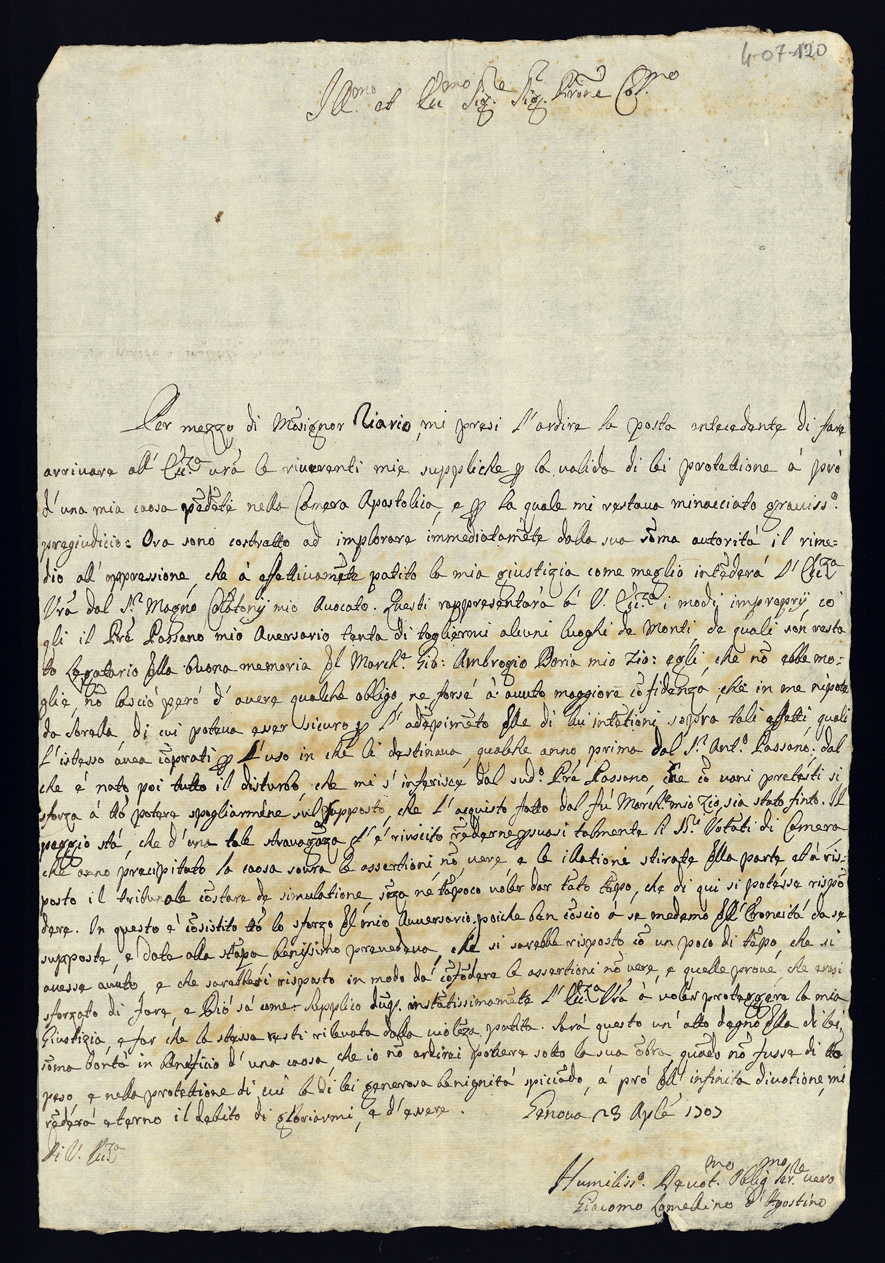 4-07-120
Ill.mo et Ecc.mo Sig.re Sig.r Prone Col.mo
Per mezzo di Mōsignor Riario, mi presi l'ardire la posta antecedente di fare
arrivare all' Ecc.za vrā le riverenti mie suppliche p la valida di lei protettione à prò
d'una mia caosa pēdētē nella Camera Apostolica, e p la quale mi restava minacciato graviss.o
pregiudicio: Ora sono costratto ad implorare immediatamēte dalla sua sōma autorità il rime=
dio all' oppressione, che à effettivamēte patito la mia giustizia come meglio intēderà l' Ecc.za
Vrā dal S.r Magno mio Avocato. Questi rappresentarà à V. Ecc.za i modi improprij cō
gli il Prē Passano mio Aversario tenta di togliermi alcuni luoghi de Monti de quali son resta
to Legatario della buona memoria del March.e Gio: Ambrogio Doria mio Zio: egli, che nō ebbe mo=
glie, nō lasciò però d'avere qualche obligo, ne forse à avuto maggiore cōfidenza, che in me nipote
da sorella di cui poteva esser sicuro p l'adēpimēto delle di lui intētioni sopra tali effetti, quali
l'istesso avea cōprati p l'uso in che li destinava, qualche anno prima dal S.r Ant.o Passano. dal
che è nato poi tutto il disturbo, che mi s'inferisce dal sud.o Prē Passano che cō vani pretesti si
sforza à ttō potere spogliarmene sul supposto, che l'acquisto fatto dal fù March.e mio Zio, sia stato finto. Il
peggio stà, che d'una tale stravagāza gl'è riuscito rēderne psuasi talmente li SS.ri Votati di Camera
che anno precipitato la caosa sovra le assertioni nō vere e le illationi stirate della parte ed à ris=
posto il tribunale cōstare de simulatione, sēza nè tāpoco voler dar tāto tēpo, che di quì si potesse rispō
dere. In questo è cōsistito ttō lo sforzo del mio Avversario, poiche ben cōscio à se medemo dell' Erroneità da se
supposte, e date alla stāpa benissimo prevedeva, che si sarebbe risposto cō un poco di tēpo, che si
avesse avuto, e che sarebbesi risposto in modo da cōfōdere le assertioni nō vere, e quelle prove, che eresi
sforzato di fare, e Dio sà come. Supplico dūq. instātissimamēte l' Ecc.za Vrā à voler proteggere la mia
Giustizia, e far che la stessa resti rilevata dalla violēza patita. Sarà questo un'atto degno della di lei
sōma bontà in beneficio d'una caosa, che io nō ardirei pōere sotto la sua ōbra, quādo nō fusse di ttō
peso, e nella protettione di cui la di lei generosa benignità spiccādo, à prò dell' infinita divotione, mi
rēderà eterno il debito di gloriarmi, e d'essere. Genova 23 Aplē 1707
Di V. Ecc.za
Humiliss.o Devot.mo Oblig.mo Ser.re vero
Giacomo Lomellino d'Agostino